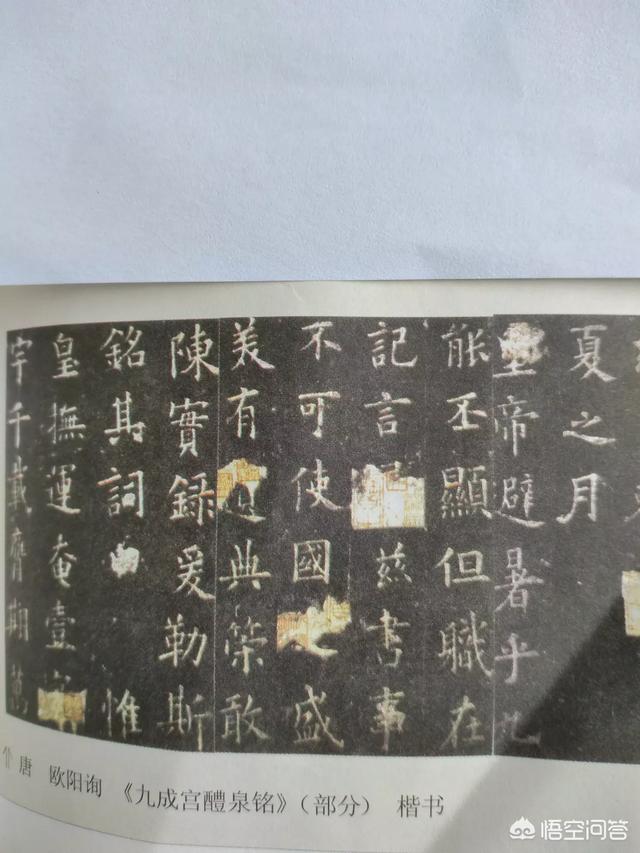 夏之月
帝避暑乎九
能丕顯但職在
記言茲書事
不可使國盛
美有典策敢
陳實録爰勒斯
銘其詞惟
皇撫運奄壹
宇千載膺期萬
唐 欧阳询 《九成宫醴泉铭》（部分） 楷书
悟空问答